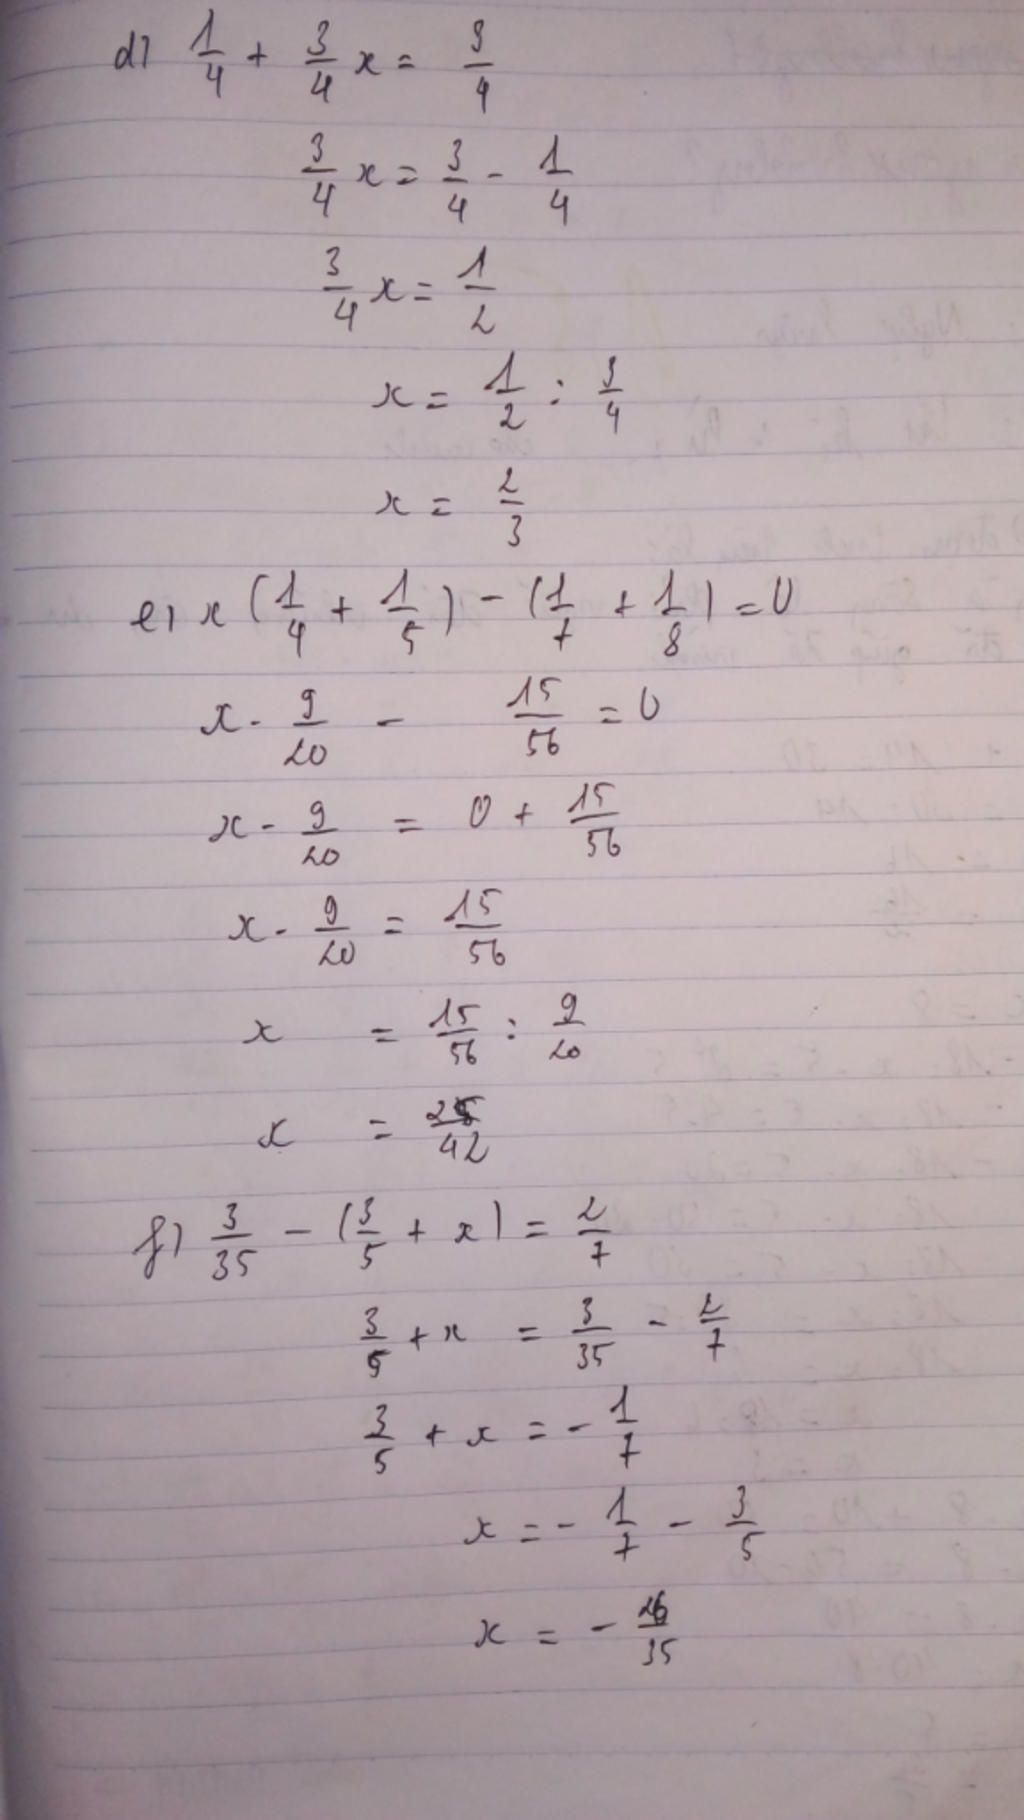 d) 1/4 + 3/4 x = 3/4
3/4 x = 3/4 - 1/4
3/4 x = 1/2
x = 1/2 : 3/4
x = 2/3
e) x (1/4 + 1/5) - (1/7 + 1/8) = 0
x . 9/20 - 15/56 = 0
x . 9/20 = 0 + 15/56
x . 9/20 = 15/56
x = 15/56 : 9/20
x = 25/42
f) 3/35 - (3/5 + x) = 2/7
3/5 + x = 3/35 - 2/7
3/5 + x = - 1/7
x = - 1/7 - 3/5
x = - 26/35